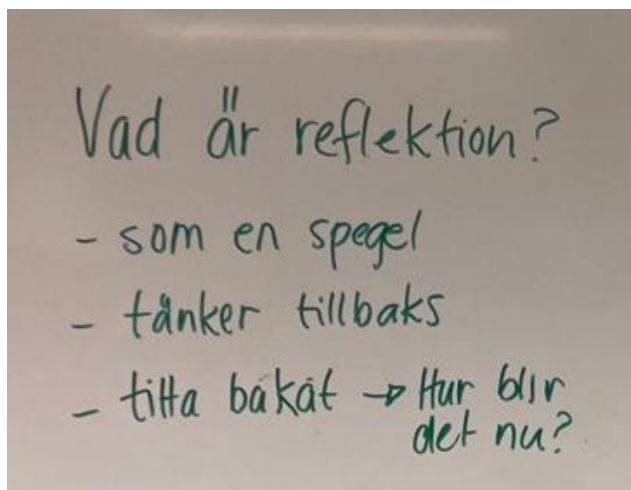 Vad är reflektion?
- som en spegel
- tänker tillbaks
- titta bakåt → Hur blir
det nu?